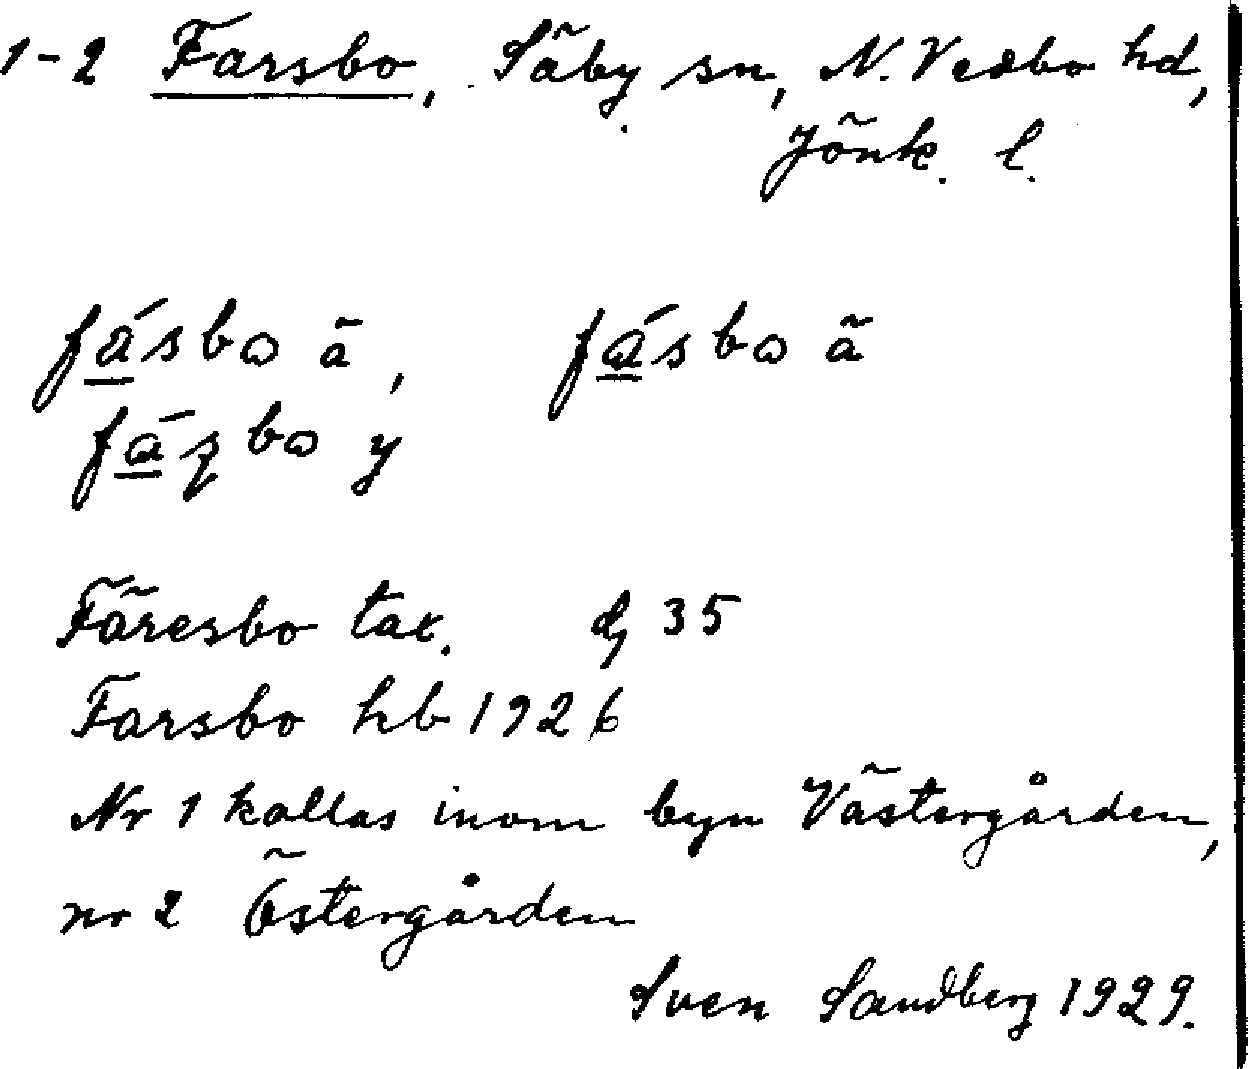 1-2 Farsbo, Säby sn, N. Vedbo hd,
Jönk. l.
fásbo ä, fásbo ä
fázbo y
Färesbo tax. dj 35
Farsbo hb 1926
Nr 1 kallas inom byn Västergården,
nr 2 Östergården
Sven Sandberg 1929.